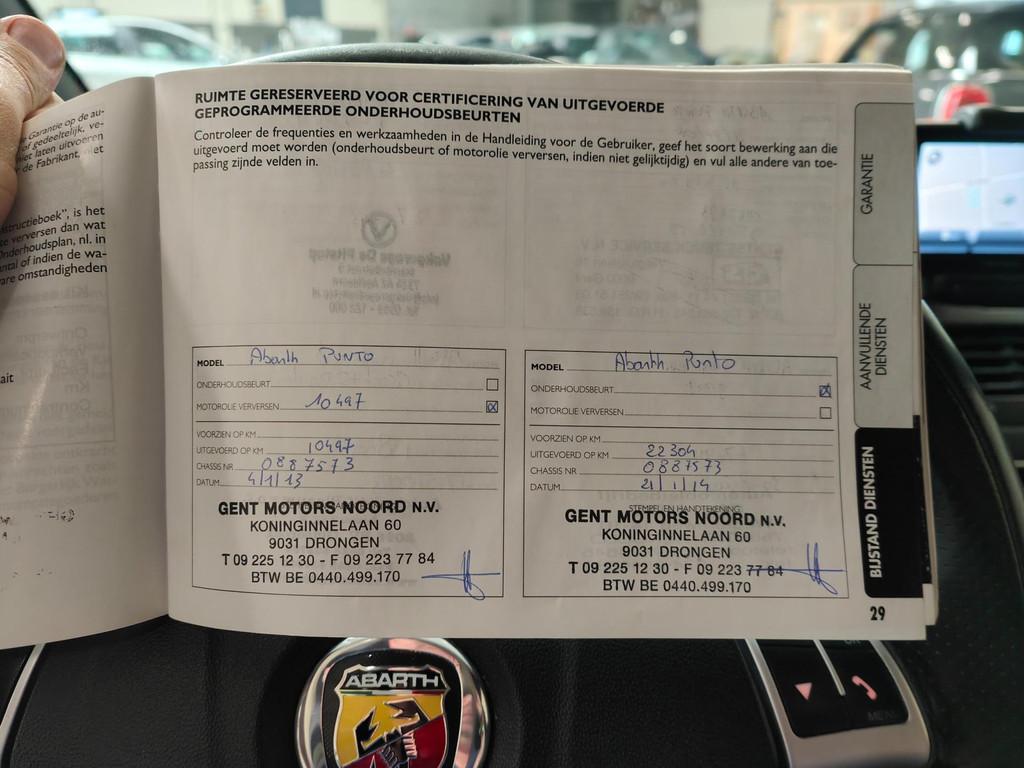 Garantie op de au-
of gedeeltelijk, ve-
niet laten uitvoeren
de Fabrikant, niet
structieboek", is het
te verversen dan wat
Onderhoudsplan, nl. in
antal of indien de wa-
are omstandigheden
ait
RUIMTE GERESERVEERD VOOR CERTIFICERING VAN UITGEVOERDE
GEPROGRAMMEERDE ONDERHOUDSBEURTEN
Controleer de frequenties en werkzaamheden in de Handleiding voor de Gebruiker, geef het soort bewerking aan die
uitgevoerd moet worden (onderhoudsbeurt of motorolie verversen, indien niet gelijktijdig) en vul alle andere van toe-
passing zijnde velden in.
MODEL Abarth PUNTO
ONDERHOUDSBEURT
MOTOROLIE VERVERSEN 10497
VOORZIEN OP KM
UITGEVOERD OP KM 10497
CHASSIS NR 0887573
DATUM 4/1/13
GENT MOTORS NOORD N.V.
KONINGINNELAAN 60
9031 DRONGEN
T 09 225 12 30 - F 09 223 77 84
BTW BE 0440.499.170
MODEL Abarth Punto
ONDERHOUDSBEURT
MOTOROLIE VERVERSEN
VOORZIEN OP KM
UITGEVOERD OP KM 22304
CHASSIS NR 0887573
DATUM 21/1/14
STEMPEL EN HANDTEKENING
GENT MOTORS NOORD N.V.
KONINGINNELAAN 60
9031 DRONGEN
T 09 225 12 30 - F 09 223 77 84
BTW BE 0440.499.170
GARANTIE
AANVULLENDE
DIENSTEN
BIJSTAND DIENSTEN
29
ABARTH
MENU